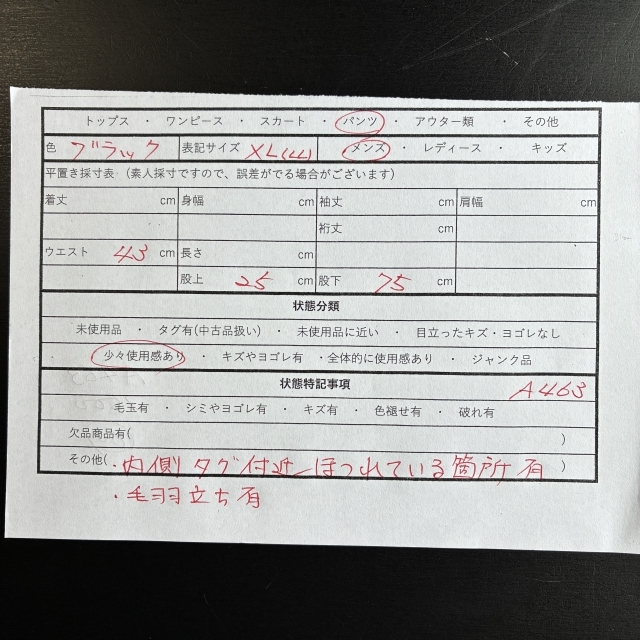 トップス ・ ワンピース ・ スカート ・ パンツ ・ アウター類 ・ その他
色 ブラック 表記サイズ XL(LL) メンズ ・ レディース ・ キッズ
平置き採寸表 (素人採寸ですので、誤差がでる場合がございます)
着丈 cm 身幅 cm 袖丈 cm 肩幅 cm
裄丈 cm
ウエスト 43 cm 長さ cm
股上 25 cm 股下 75 cm
状態分類
未使用品 ・ タグ有(中古品扱い) ・ 未使用品に近い ・ 目立ったキズ・ヨゴレなし
少々使用感あり ・ キズやヨゴレ有 ・全体的に使用感あり ・ ジャンク品
状態特記事項 A463
毛玉有 ・ シミやヨゴレ有 ・ キズ有 ・ 色褪せ有 ・ 破れ有
欠品商品有( )
その他( ・内側タグ付近ほつれている箇所有 )
・毛羽立ち有